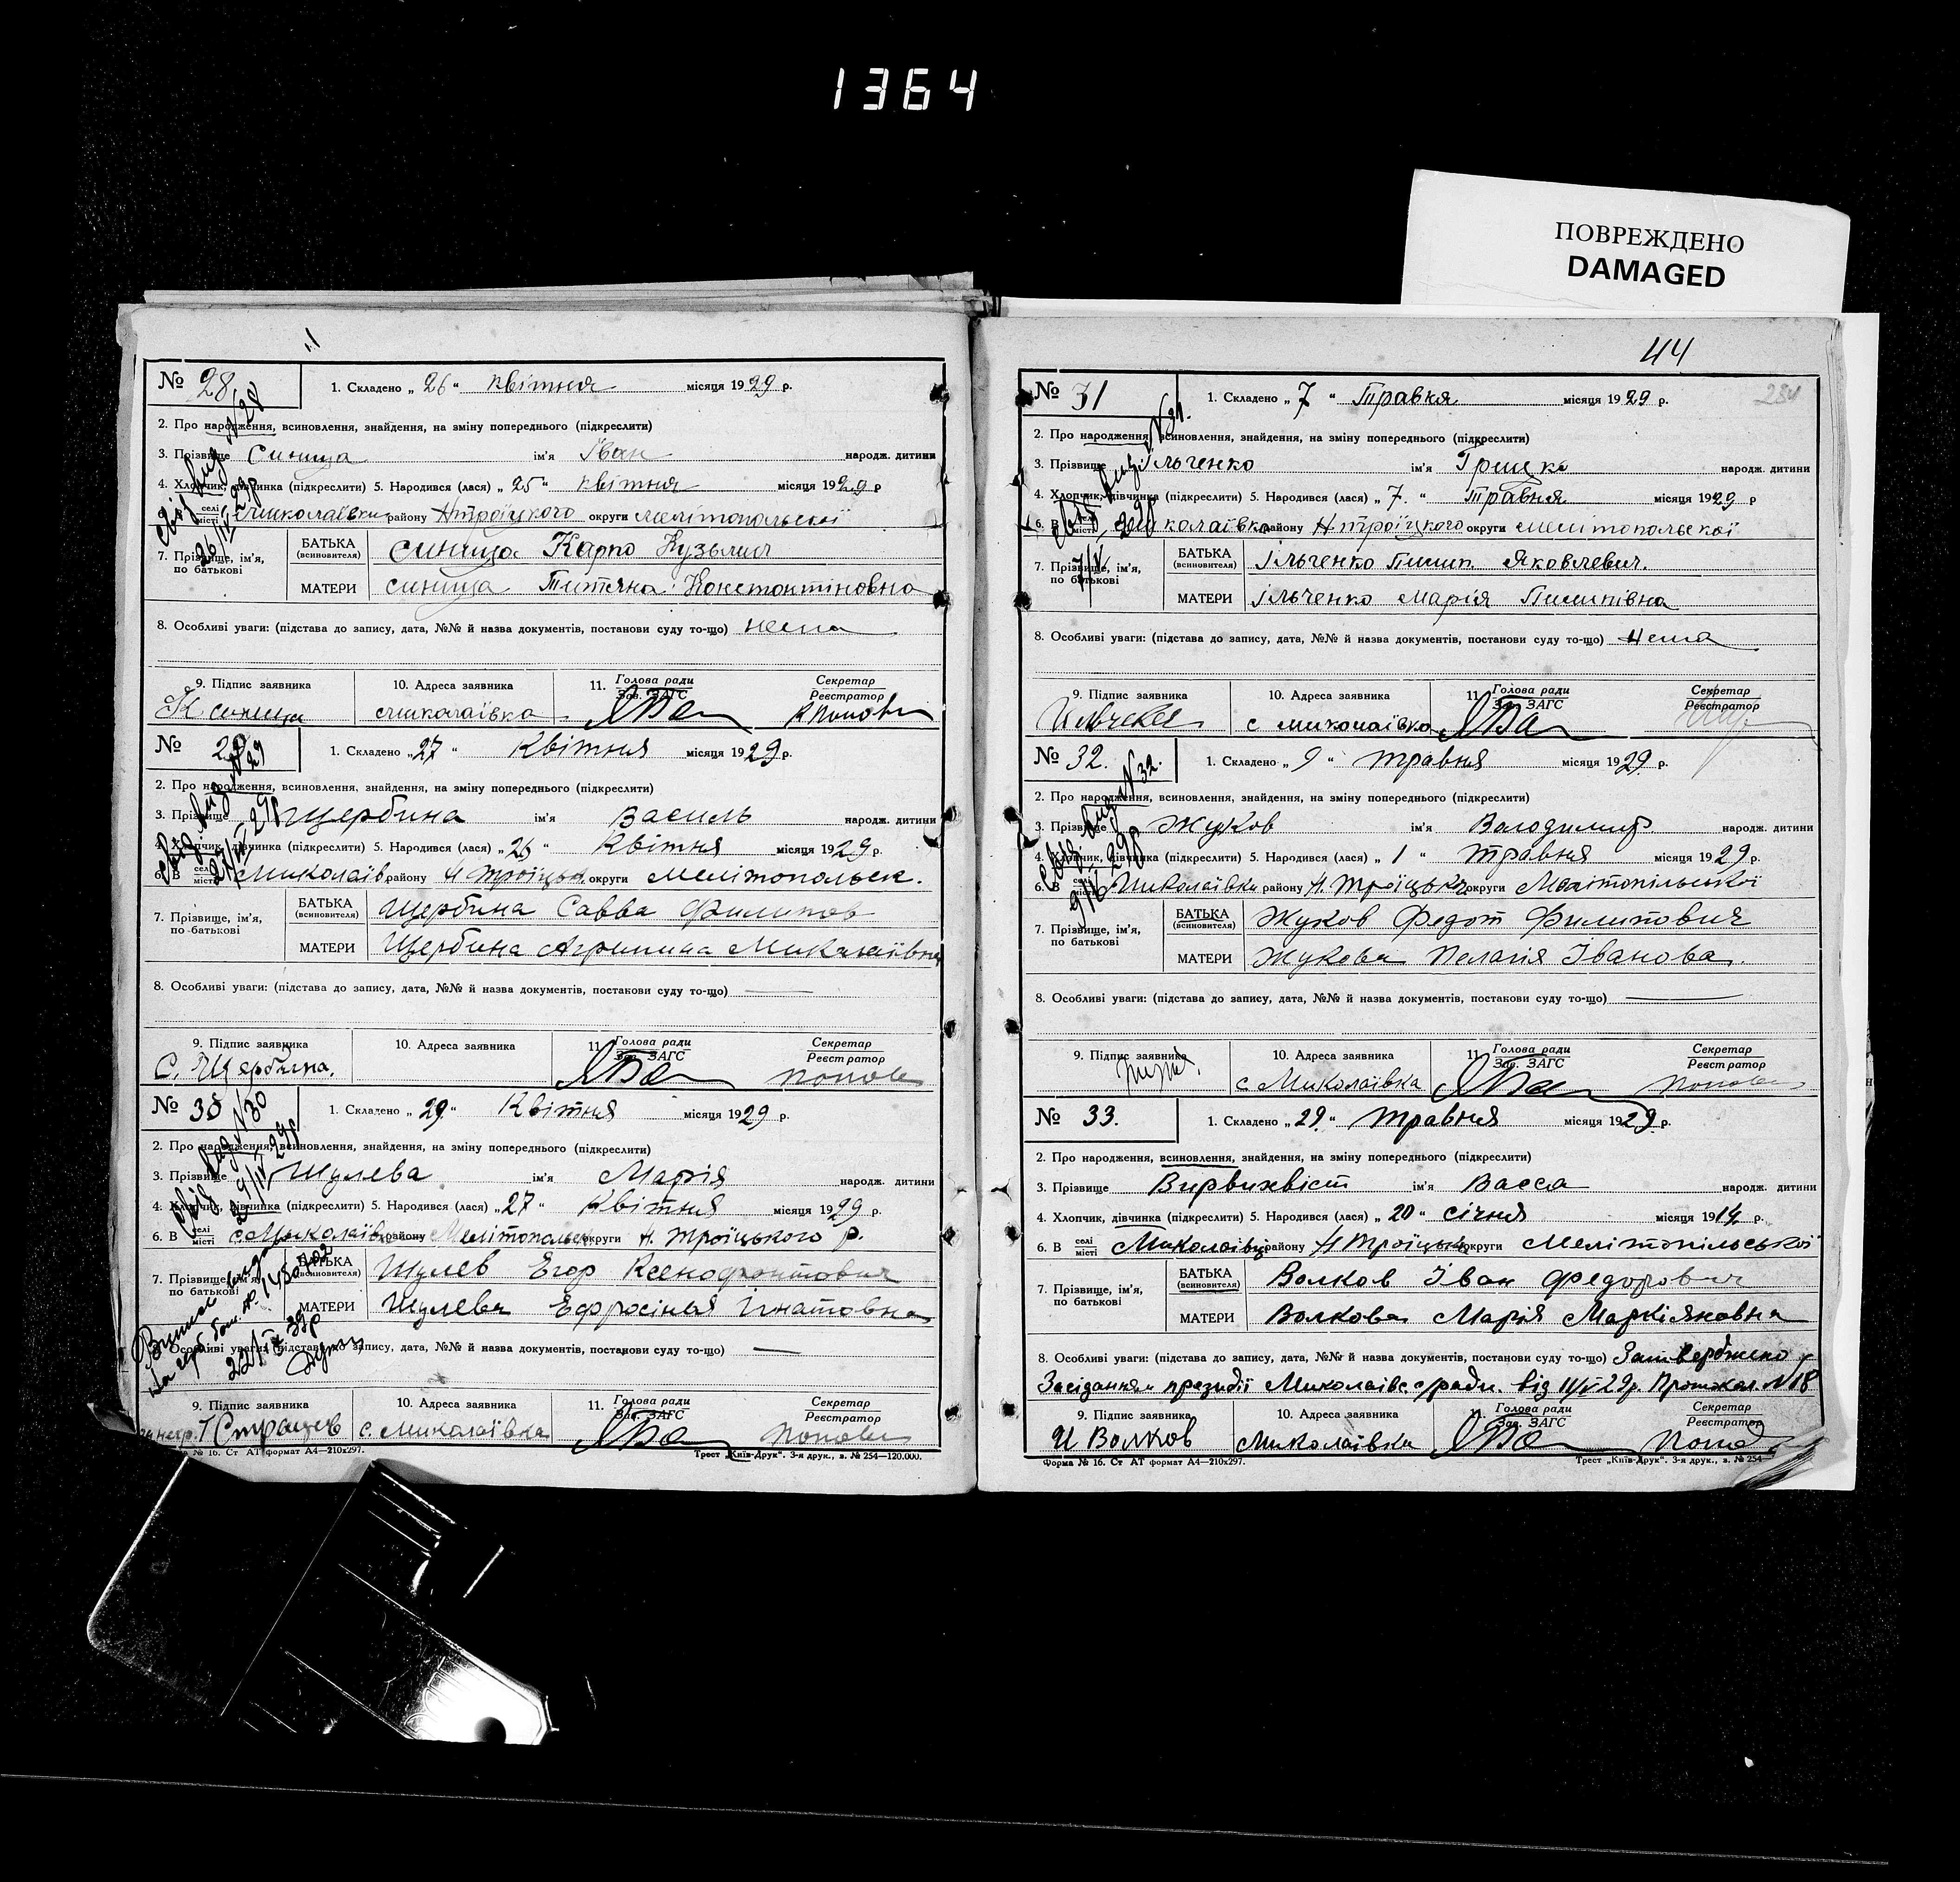 1364
ПОВРЕЖДЕНО
DAMAGED
№ 28 1. Складено „ 26 “ квітня місяця 1929 р.
2. Про народження, всиновлення, знайдення, на зміну попереднього (підкреслити)
3. Прізвище Синиця ім'я Іван народж. дитини
4. Хлопчик, дівчинка (підкреслити) 5. Народився (лася) „ 25 “ квітня місяця 1929 р
6. В селі місті Миколаївки району Нтроїцкого округи мелітопольскої
7. Прізвище, ім'я, по батькові БАТЬКА (всиновителя) Синиця Карпо Кузьмич
МАТЕРИ синиця Титяна Константіновна
8. Особливі уваги: (підстава до запису, дата, №№ й назва документів, постанови суду то-що) нема
9. Підпис заявника 10. Адреса заявника 11. Голова ради Зав. ЗАГС Секретар Реєстратор
К синица Миколаївка К Попов
№ 29 1. Складено „ 27 “ Квітня місяця 1929 р.
2. Про народження, всиновлення, знайдення, на зміну попереднього (підкреслити)
3. Прізвище Щербина ім'я Василь народж. дитини
4. Хлопчик, дівчинка (підкреслити) 5. Народився (лася) „ 26 “ Квітня місяця 1929 р.
6. В селі місті Миколаїв. району Н Троїцьк. округи Мелітопольск.
7. Прізвище, ім'я, по батькові БАТЬКА (всиновителя) Щербина Савва Филипов
МАТЕРИ Щербина Агрипина Миколаївна
8. Особливі уваги: (підстава до запису, дата, №№ й назва документів, постанови суду то-що)
9. Підпис заявника 10. Адреса заявника 11. Голова ради Зав. ЗАГС Секретар Реєстратор
С. Щербина. Попов
№ 30 1. Складено „ 29 “ Квітня місяця 1929 р.
2. Про народження, всиновлення, знайдення, на зміну попереднього (підкреслити)
3. Прізвище Шулева ім'я Марія народж. дитини
4. Хлопчик, дівчинка (підкреслити) 5. Народився (лася) „ 27 “ Квітня місяця 1929 р.
6. В селі місті с. Миколаївк. району Мелітопольск округи Н. Троїцького р.
7. Прізвище, ім'я, по батькові БАТЬКА (всиновителя) Шулев Егор Ксенофонтович
МАТЕРИ Шулева Ефросінья Ігнатовна
8. Особливі уваги: (підстава до запису, дата, №№ й назва документів, постанови суду то-що)
9. Підпис заявника 10. Адреса заявника 11. Голова ради Зав. ЗАГС Секретар Реєстратор
с. Миколаївка Попов
№ 16. Ст АТ формат А4—210х297. Трест „Київ-Друк“. 3-я друк., з. № 254—120.000.
44
№ 31 1. Складено „ 7 “ Травня місяця 1929 р.
2. Про народження, всиновлення, знайдення, на зміну попереднього (підкреслити)
3. Прізвище Ільченко ім'я Грицко народж. дитини
4. Хлопчик, дівчинка (підкреслити) 5. Народився (лася) „ 7. “ Травня місяця 1929 р
6. В селі місті Миколаївка району Нтроїцкого округи мелітопольскої
7. Прізвище, ім'я, по батькові БАТЬКА (всиновителя) Ільченко Пилип Яковлевич.
МАТЕРИ Ільченко Марія Пилипівна
8. Особливі уваги: (підстава до запису, дата, №№ й назва документів, постанови суду то-що) нема
9. Підпис заявника 10. Адреса заявника 11. Голова ради Зав. ЗАГС Секретар Реєстратор
с миколаївка
№ 32. 1. Складено „ 9 “ травня місяця 1929 р.
2. Про народження, всиновлення, знайдення, на зміну попереднього (підкреслити)
3. Прізвище Жуков ім'я Володимир народж. дитини
4. Хлопчик, дівчинка (підкреслити) 5. Народився (лася) „ 1 “ травня місяця 1929 р.
6. В селі місті Миколаївки району Н. Троїцьк. округи Мелітопільської
7. Прізвище, ім'я, по батькові БАТЬКА (всиновителя) Жуков Федот Филипович
МАТЕРИ Жукова Пелагія Іванова.
8. Особливі уваги: (підстава до запису, дата, №№ й назва документів, постанови суду то-що)
9. Підпис заявника 10. Адреса заявника 11. Голова ради Зав. ЗАГС Секретар Реєстратор
с Миколаївка Попов
№ 33. 1. Складено „ 29. “ травня місяця 1929 р.
2. Про народження, всиновлення, знайдення, на зміну попереднього (підкреслити)
3. Прізвище Вирвихвіст ім'я Васса народж. дитини
4. Хлопчик, дівчинка (підкреслити) 5. Народився (лася) „ 20 “ січня місяця 1914. р.
6. В селі місті Миколаївці району Н Троїцьк. округи Мелітопільської
7. Прізвище, ім'я, по батькові БАТЬКА (всиновителя) Волков Іван Федорович
МАТЕРИ Волкова Марія Маркіяновна
8. Особливі уваги: (підстава до запису, дата, №№ й назва документів, постанови суду то-що) Затвержено
Засіданням президії Миколаївс с/ради. від 11/V 29р. Протокол. №18
9. Підпис заявника 10. Адреса заявника 11. Голова ради Зав. ЗАГС Секретар Реєстратор
И Волков Миколаївка Попов
Форма № 16. Ст АТ формат А4—210х297. Трест „Київ-Друк“. 3-я друк., з. № 254—